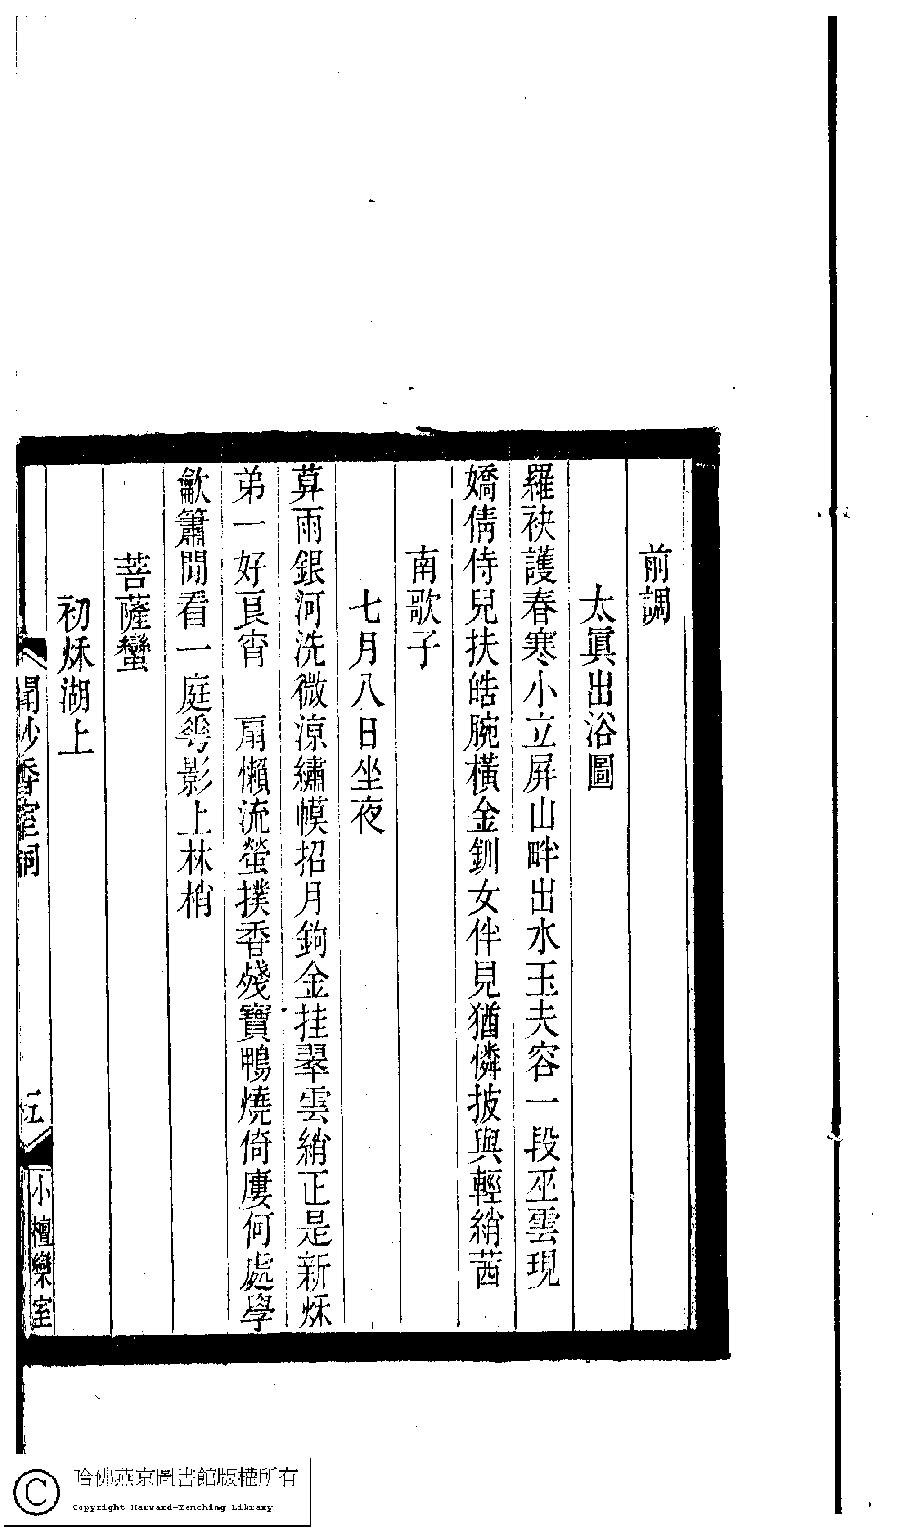 前調
太眞出浴圖
羅袂護春寒小立屏山畔出水玉夫容一段巫雲現
嬌倩侍兒扶皓腕橫金釧女伴見猶憐披與輕綃茜
南歌子
七月八日坐夜
算雨銀河洗微涼繡幙招月鉤金挂翠雲綃正是新秌
弟一好良宵　扇懶流螢撲香殘寶鴨燒倚廔何處學
龡簫閒看一庭雩影上林梢
菩薩蠻
初秌湖上
聞妙香室詞
五
小檀欒室
哈佛燕京圖書館版權所有
Copyright Harvard-Yenching Library